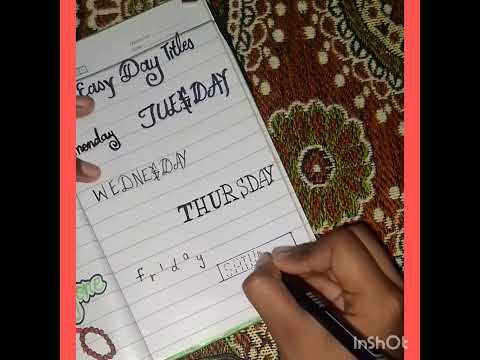 Easy Day Titles
monday
TUESDAY
WEDNESDAY
THURSDAY
friday
SATU
InShOt